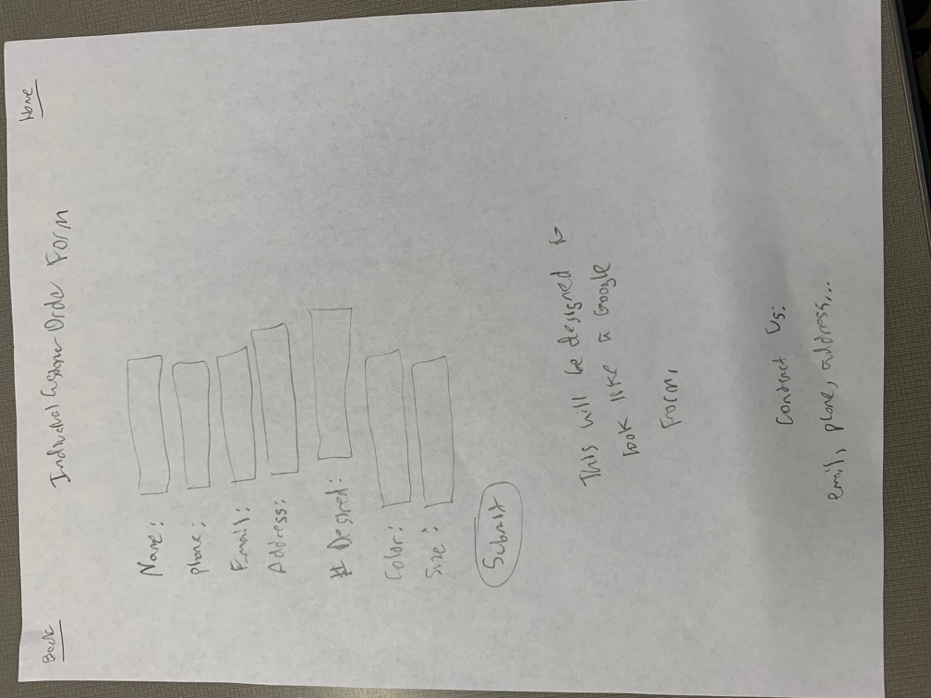 Back
Home
Individual Customer Order Form
Name:
Phone:
Email:
Address:
# Desired:
Color:
Size:
Submit
This will be designed to
look like a Google
Form.
Contact Us:
email, phone, address...